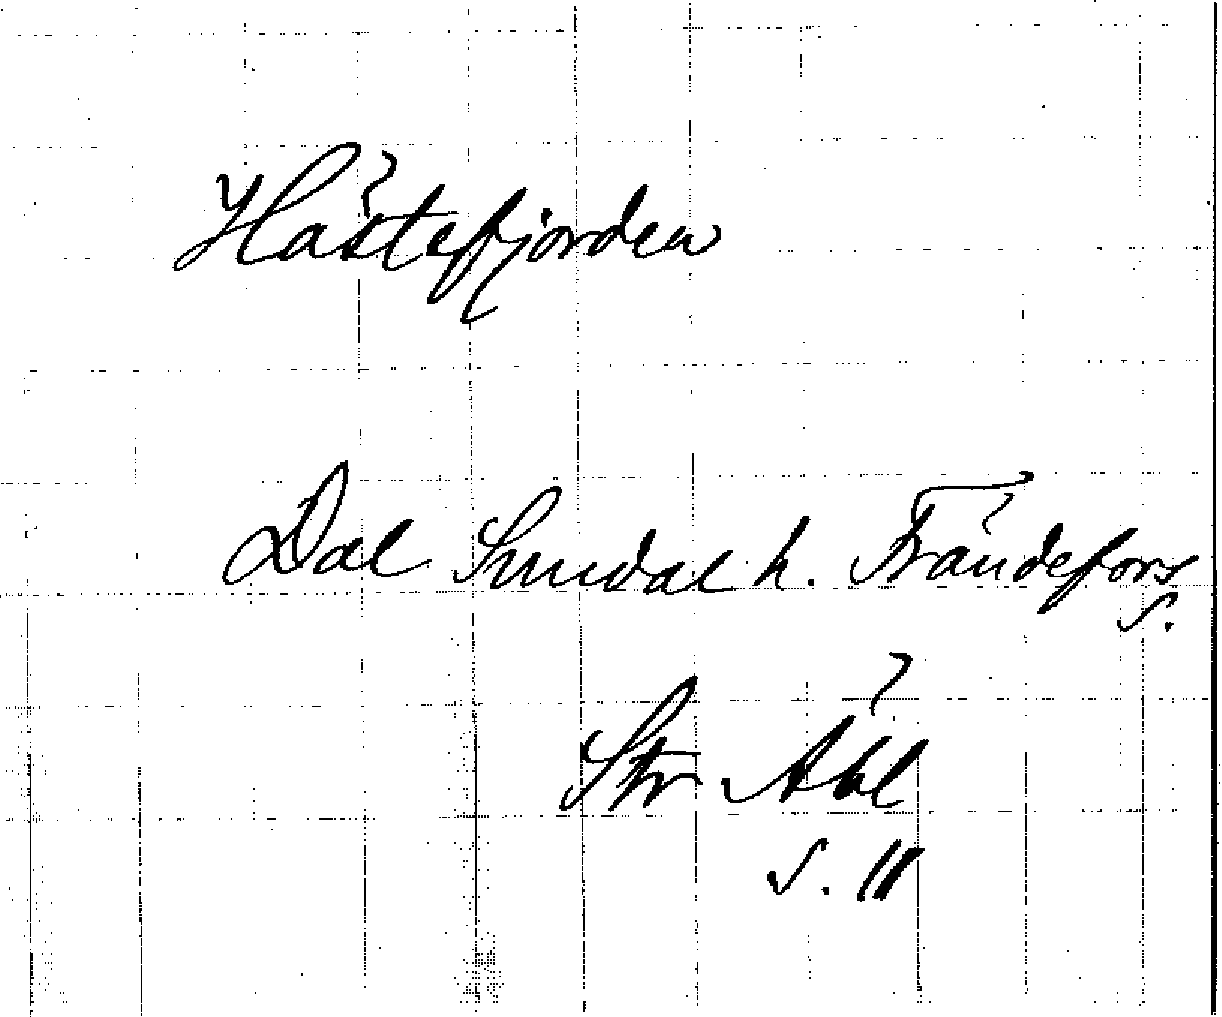 Hästefjorden
Dal Sundal h. Frändefors
s.
Str Äbl
s. 11